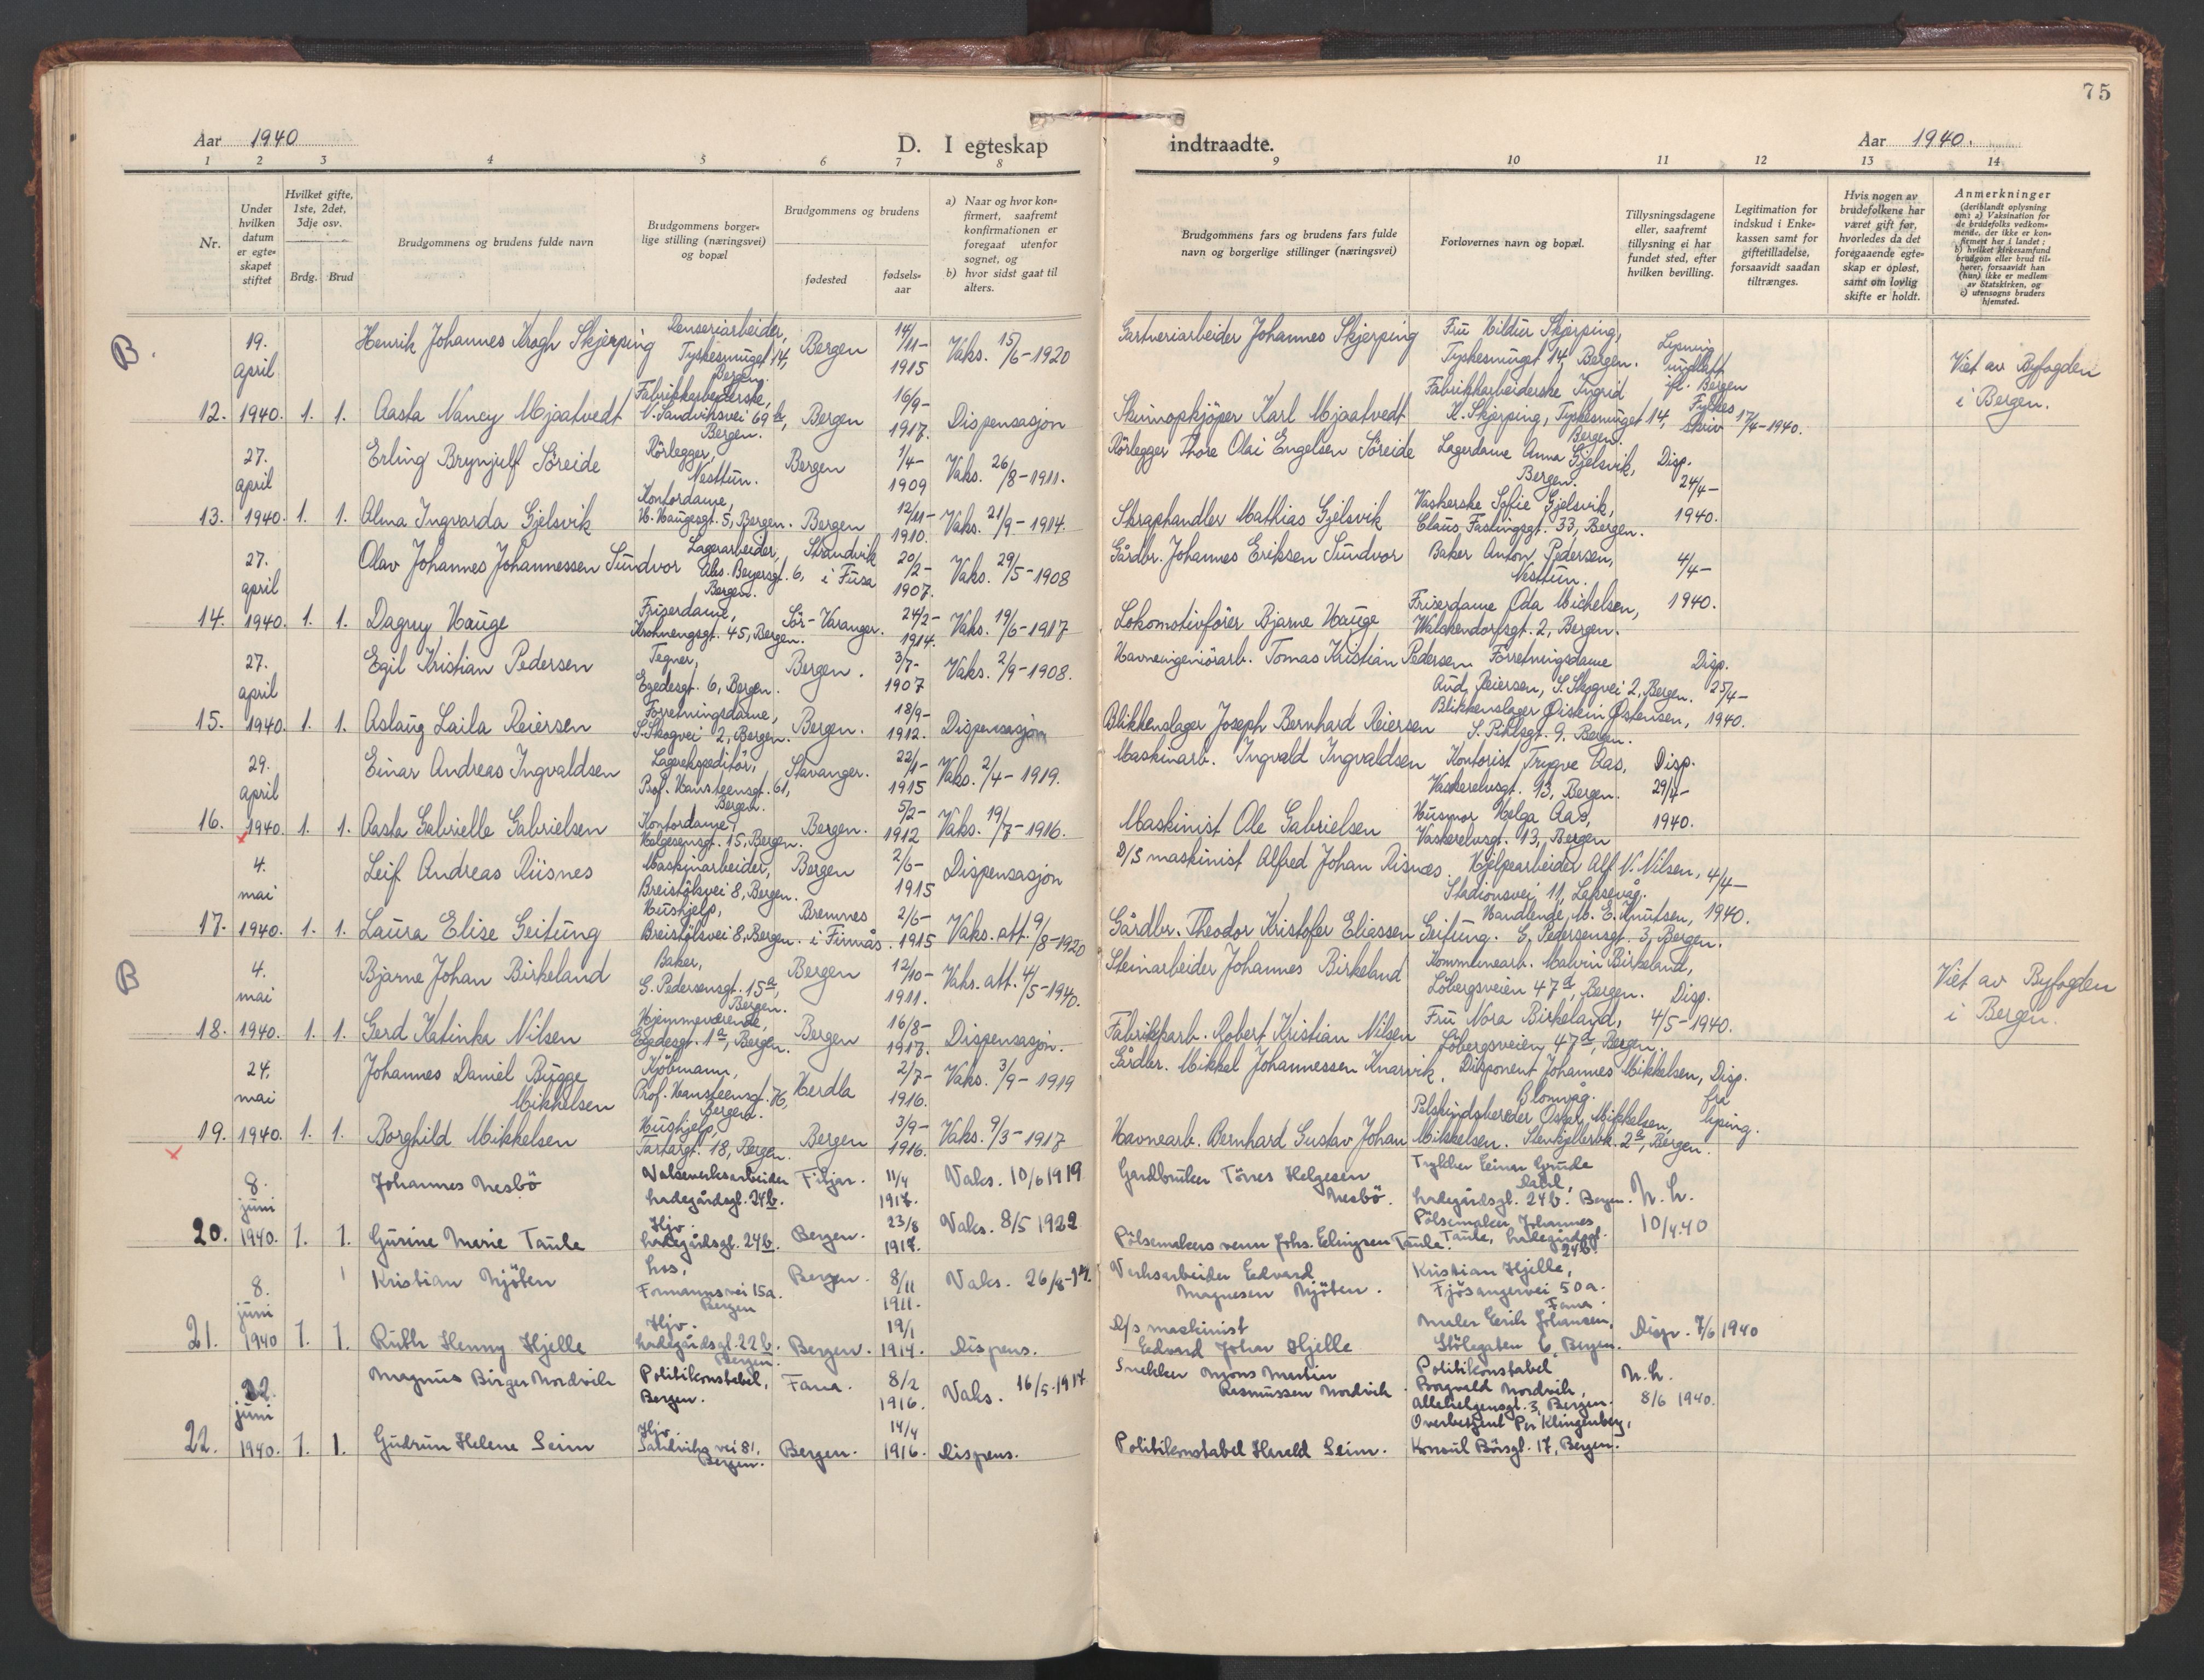 75
Aar 1940
D. I egteskap indtraadte.
Aar 1940.
1 2 3 4 5 6 7 8 9 10 11 12 13 14
Nr.
Under hvilken datum er egteskapet stiftet
Hvilket gifte, 1ste, 2det, 3dje osv.
Brdg. Brud
Brudgommens og brudens fulde navn
Brudgommens borgerlige stilling (næringsvei) og bopæl
Brudgommens og brudens
fødested
fødselsaar
a) Naar og hvor konfirmert, saafremt konfirmationen er foregaat utenfor sognet, og
b) hvor sidst gaat til alters.
Brudgommens fars og brudens fars fulde navn og borgerlige stillinger (næringsvei)
Forlovernes navn og bopæl.
Tillysningsdagene eller, saafremt tillysning ei har fundet sted, efter hvilken bevilling.
Legitimation for indskud i Enkekassen samt for giftetilladelse, forsaavidt saadan tiltrænges.
Hvis nogen av brudefolkene har været gift før, hvorledes da det foregaaende egteskap er opløst, samt om lovlig skifte er holdt.
Anmerkninger
(deriblandt oplysning om: a) Vaksination for de brudefolks vedkommende, der ikke er konfirmert her i landet; b) hvilket kirkesamfund brudgom eller brud tilhører, forsaavidt han (hun) ikke er medlem av Statskirken, og c) utensogns bruders hjemsted.
B.
19. april Henrik Johannes Krogh Skjerping Renseriarbeider, Tyskesmuget 14, Bergen. Bergen 14/11-1915 Vaks. 15/6-1920 Gartneriarbeider Johannes Skjerping Fru Hildur Skjerping, Tyskesmuget 14, Bergen. Lysning undlatt ifl. Bergen Fylkes skriv 17/4-1940. Viet av Byfogden i Bergen.
12. 1940. 1. 1. Aasta Nancy Mjaatvedt Fabrikkarbeiderske, N. Sandviksvei 69b, Bergen. Bergen 16/9-1917. Dispensasjon Skinnopkjöper Karl Mjaatvedt Fabrikkarbeiderske Ingrid K. Skjerping, Tyskesmuget 14, Bergen.
27. april Erling Brynjulf Söreide Rörlegger, Nesttun. Bergen 1/4-1909 Vaks. 26/8-1911. Rörlegger Thore Olai Engelsen Söreide Lagerdame Anna Gjelsvik, Bergen. Disp. 24/4-1940.
13. 1940. 1. 1. Alma Ingvarda Gjelsvik Kontordame, H. Haugesgt. 5, Bergen. Bergen 12/11-1910. Vaks. 21/9-1914. Skraphandler Mathias Gjelsvik Vaskerske Sofie Gjelsvik, Claus Fastingsgt. 33, Bergen.
27. april Olav Johannes Johannessen Sundvor Lagerarbeider, Abs. Beyersgt. 6, Bergen. Strandvik i Fusa 20/2-1907. Vaks. 29/5-1908 Gårdbr. Johannes Eriksen Sundvor Baker Anton Pedersen, Nesttun. 4/4-1940.
14. 1940. 1. 1. Dagny Hauge Friserdame, Krohnengsgt. 45, Bergen. Sör-Varanger. 24/2-1914. Vaks. 19/6-1917 Lokomotivförer Bjarne Hauge Friserdame Oda Michelsen, Walckendorfsgt. 2, Bergen.
27. april Egil Kristian Pedersen Tegner, Egedesgt. 6, Bergen. Bergen. 3/7-1907 Vaks. 2/9-1908. Havneingeniörarb. Tomas Kristian Pedersen Forretningsdame Aud Reiersen, S. Skogvei 2, Bergen. Disp. 25/4-1940.
15. 1940. 1. 1. Aslaug Laila Reiersen Forretningsdame, S. Skogvei 2, Bergen. Bergen. 18/9-1912. Dispensasjon Blikkenslager Joseph Bernhard Reiersen Blikkenslager Öistein Östensen, S. Pihlsgt. 9, Bergen.
29. april Einar Andreas Ingvaldsen Lagerekspeditör, Prof. Hansteensgt. 61, Bergen. Stavanger. 22/1-1915 Vaks. 2/4-1919. Maskinarb. Ingvald Ingvaldsen Kontorist Trygve Aas, Vaskerelvsgt. 13, Bergen. Disp. 29/4-1940.
16. 1940. 1. 1. Aasta Gabrielle Gabrielsen Kontordame, Helgesensgt. 15, Bergen. Bergen. 5/2-1912 Vaks. 19/7-1916. Maskinist Ole Gabrielsen Husmor Helga Aas, Vaskerelvsgt. 13, Bergen
4. mai Leif Andreas Riisnes Maskinarbeider, Breistölsvei 8, Bergen. Bergen 2/6-1915 Dispensasjon D/S maskinist Alfred Johan Risnes. Hjelpearbeider Alf N. Nilsen, Stadionsvei 11, Laksevåg. 4/4-1940.
17. 1940. 1. 1. Laura Elise Geitung Hushjelp, Breistölsvei 8, Bergen. Bremnes i Finnås. 2/6-1915 Vaks. att. 9/8-1920 Gårdbr. Theodor Kristofer Eliassen Geitung. Handlende, M. E. Knutsen, G. Pedersensgt. 3, Bergen.
B
4. mai Bjarne Johan Birkeland Baker, G. Pedersensgt. 15a, Bergen. Bergen 12/10-1911. Vaks. att. 4/5-1940. Steinarbeider Johannes Birkeland Kommunearb. Malvin Birkeland, Löbergsveien 47a, Bergen. Disp. 4/5-1940. Viet av Byfogden i Bergen.
18. 1940. 1. 1. Gerd Katinka Nilsen Hjemmeværende, Egedesgt. 1a, Bergen. Bergen 16/8-1917. Dispensasjon. Fabrikkarb. Robert Kristian Nilsen Fru Nora Birkeland, Löbergsveien 47a, Bergen.
24. mai Johannes Daniel Bugge Mikkelsen Kjöbmann, Prof. Hansteensgt. 76, Bergen. Herdla 2/7-1916. Vaks. 3/9-1919 Gårdbr. Mikkel Johannessen Knarvik. Disponent Johannes Mikkelsen, Blomvåg. Disp. fra lysing.
19. 1940. 1. 1. Borghild Mikkelsen Hushjelp, Tartargt. 18, Bergen. Bergen 3/9-1916. Vaks. 9/3-1917 Havnearb. Bernhard Gustav Johan Mikkelsen. Pelskindsbereder Oskar Mikkelsen, Stenkjellerbk. 2a, Bergen.
8. juni Johannes Nesbö Valseverksarbeider Ladegårdsgt. 24b. Fitjar. 11/4 1917. Vaks. 10/6 1919 Gardbruker Törres Helgesen Nesbö. Trykker Einar Grude Dahl, Ladegårdsgt. 24b. Bergen. N. h. 10/4.40
20. 1940. 1. 1. Gurine Marie Taule Hjv. Ladegårdsgt. 24b. Bergen. 23/8 1917. Vaks. 8/5 1922 Pölsemakersvenn Johs. Elingsen Taule. Pölsemaker Johannes Taule, Ladegårdsgt. 24b.
8. juni Kristian Mjöben Formannsvei 15a. Bergen Bergen. 8/11 1911. Vaks. 26/8-14. Verksarbeider Edvard Magnesen Mjöben. Kristian Hjelle, Fjösangervei 50a. Fana.
21. 1940 1. 1. Ruth Henny Hjelle Hjv. Ladegårdsgt. 22b. Bergen. Bergen. 19/1 1914. Dispens. D/s maskinist Edvard Johan Hjelle Maler Erich Johansen, Stölegaten 6, Bergen. Disp. 7/6 1940
22. juni Magnus Birger Nordvik Politikonstabel, Bergen. Fana. 8/2 1916. Vaks. 16/5-1917 Snekker Mons Martin Rasmussen Nordvik. Politikonstabel Borgvald Nordvik, Allehelgensgt. 3, Bergen. N. h. 8/6 1940.
22. 1940. 1. 1. Gudrun Helene Seim Hjv. Sandvika vei 81. Bergen. Bergen. 14/4 1916. Dispens. Politikonstabel Harald Seim. Overbetjent Per Klingenberg, Konsul Börsgt. 17, Bergen.